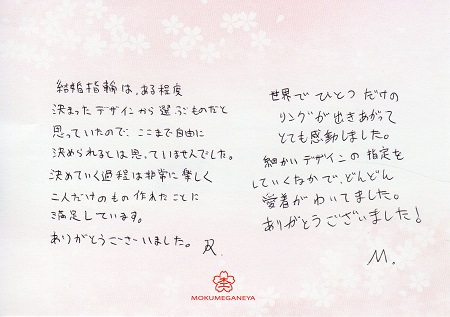 結婚指輪は、ある程度
決まったデザインから選ぶものだと
思っていたので、ここまで自由に
決められるとは思っていませんでした。
決めていく過程は非常に楽しく
二人だけのもの作れたことに
満足しています。
ありがとうございました。 R.
世界でひとつだけの
リングが出きあがって
とても感動しました。
細かいデザインの指定を
していくなかで、どんどん
愛着がわいてました。
ありがとうございました!
M.
MOKUMEGANEYA